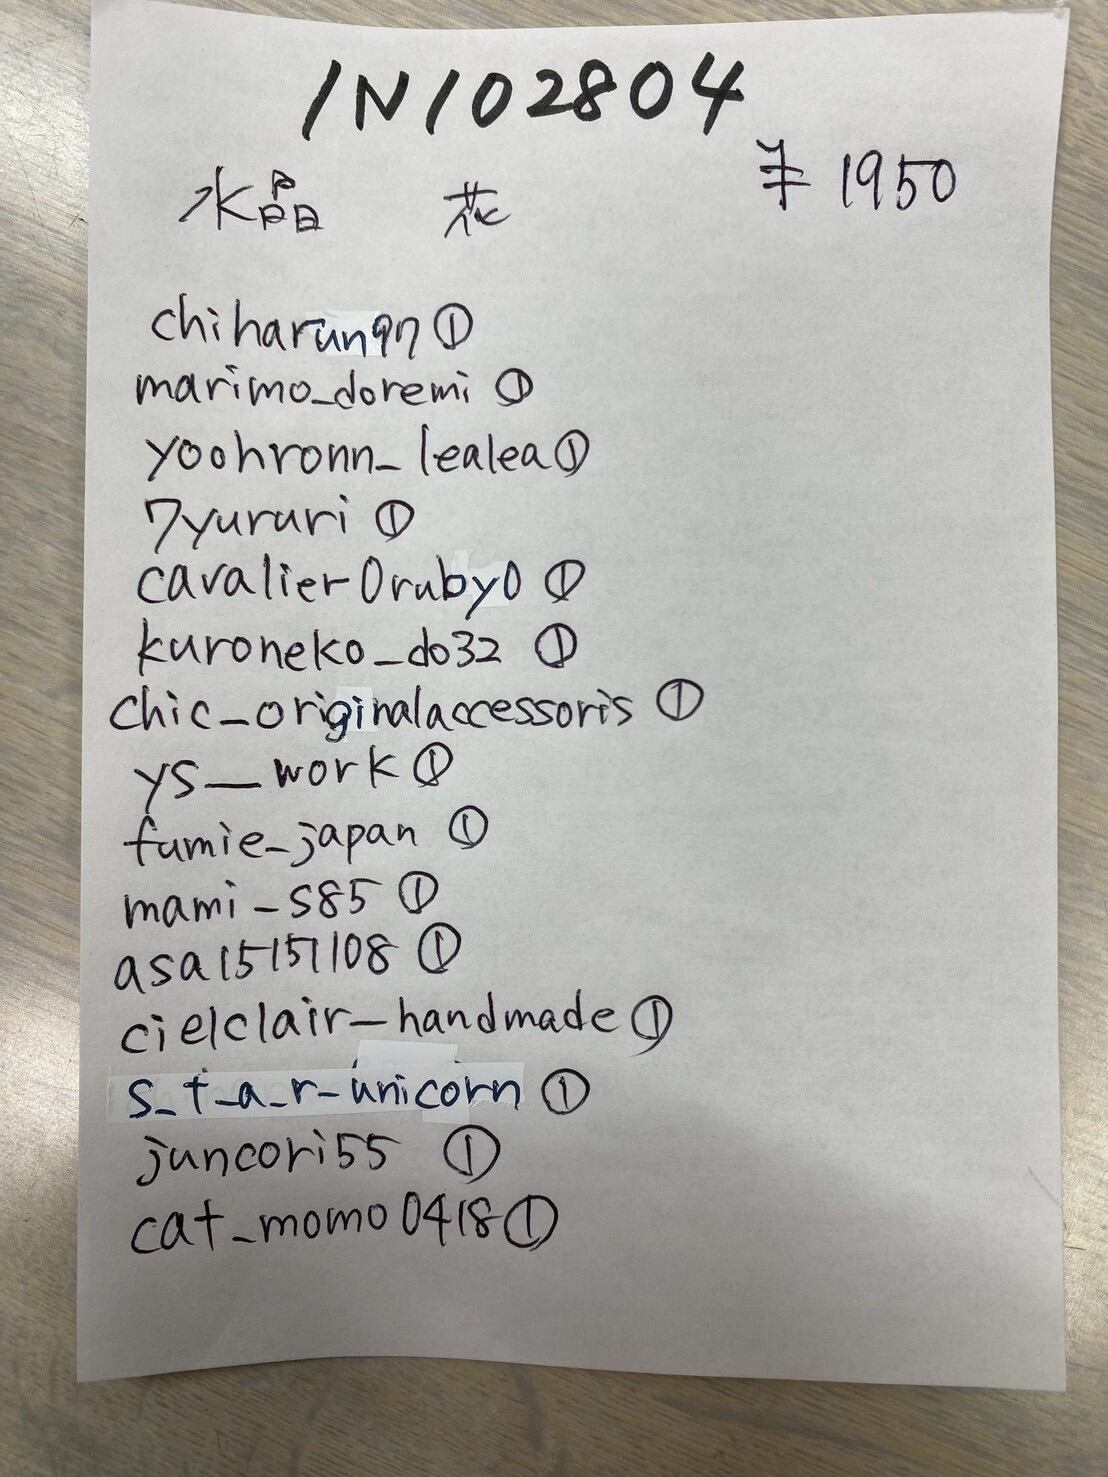 1N102804
水晶 花 ¥1950
chiharun97 ①
marimo_doremi ①
yoohronn_lealea ①
7yururi ①
cavalier0ruby0 ①
kuroneko_do32 ①
chic_originalaccessoris ①
ys__work ①
fumie_japan ①
mami_s85 ①
asa15151108 ①
cielclair_handmade ①
s_t_a_r_unicorn ①
juncori55 ①
cat_momo0418 ①